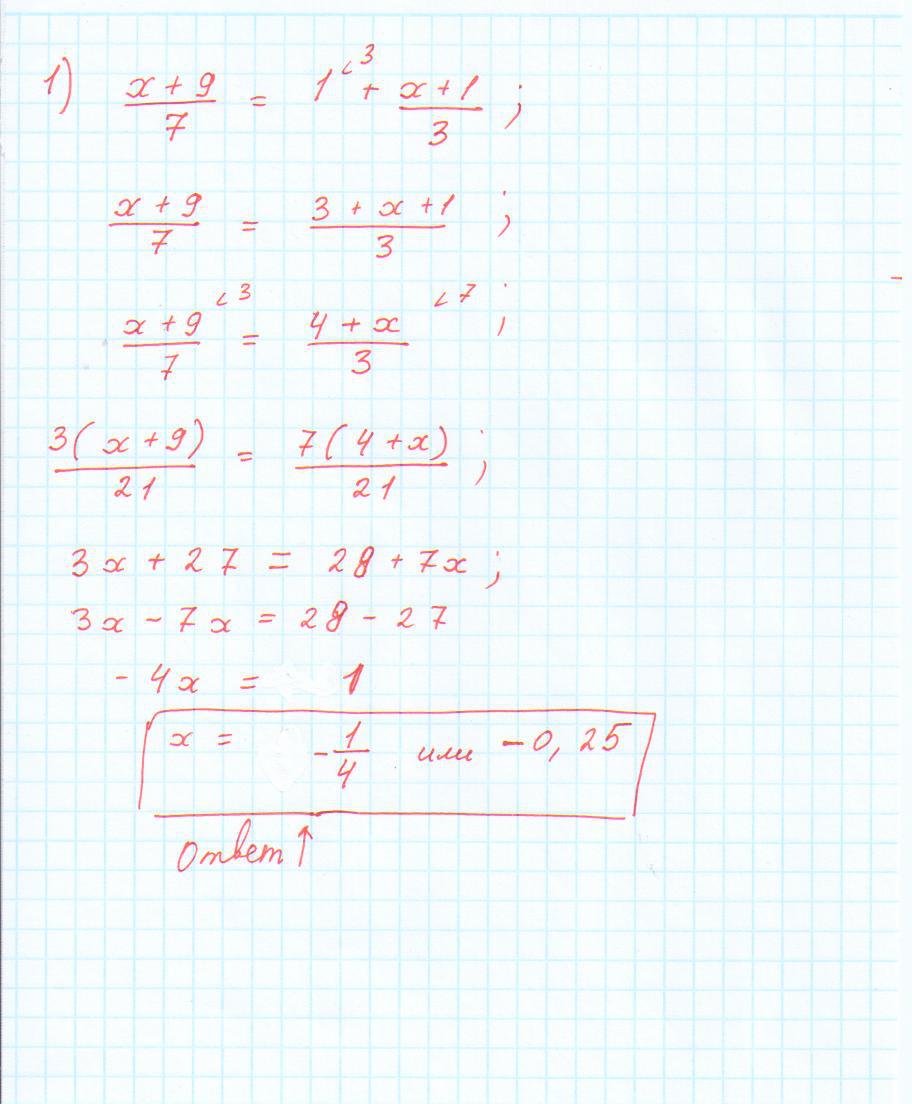 1) (x + 9)/7 = 1^3 + (x + 1)/3 ;
(x + 9)/7 = (3 + x + 1)/3 ;
(x + 9)/7 ^3 = (4 + x)/3 ^7 ;
3(x + 9)/21 = 7(4 + x)/21 ;
3x + 27 = 28 + 7x ;
3x - 7x = 28 - 27
- 4x = 1
x = - 1/4 или - 0,25
Ответ ↑